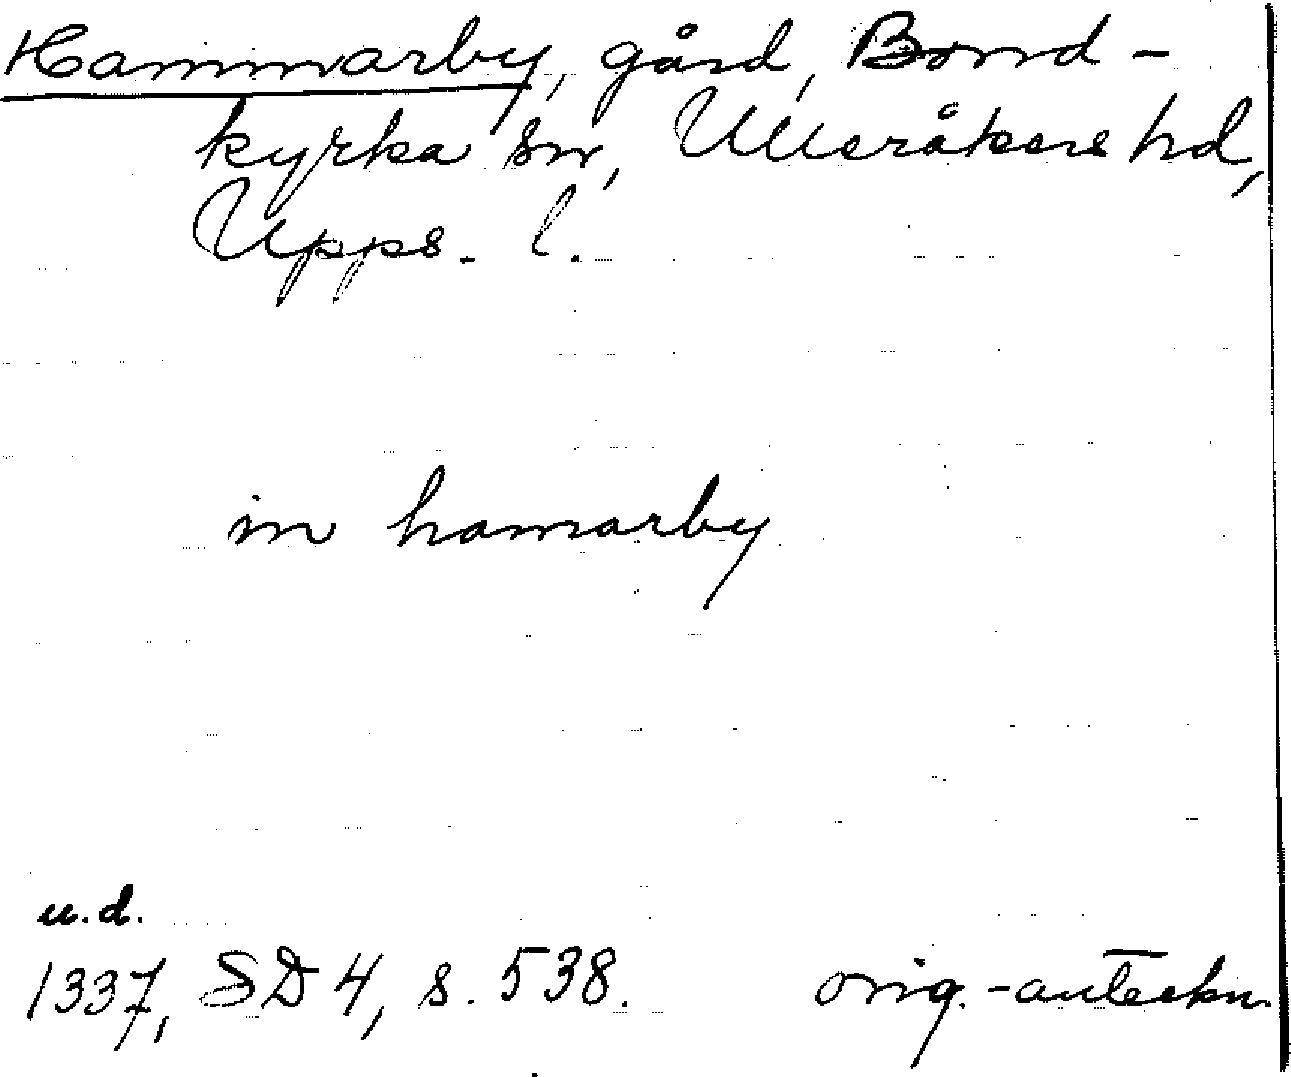 Hammarby, gård, Bond-
kyrka sn, Ulleråkers hd,
Upps. l.
in hamarby
u.d.
1337, SD 4, s. 538. orig.-anteckn.